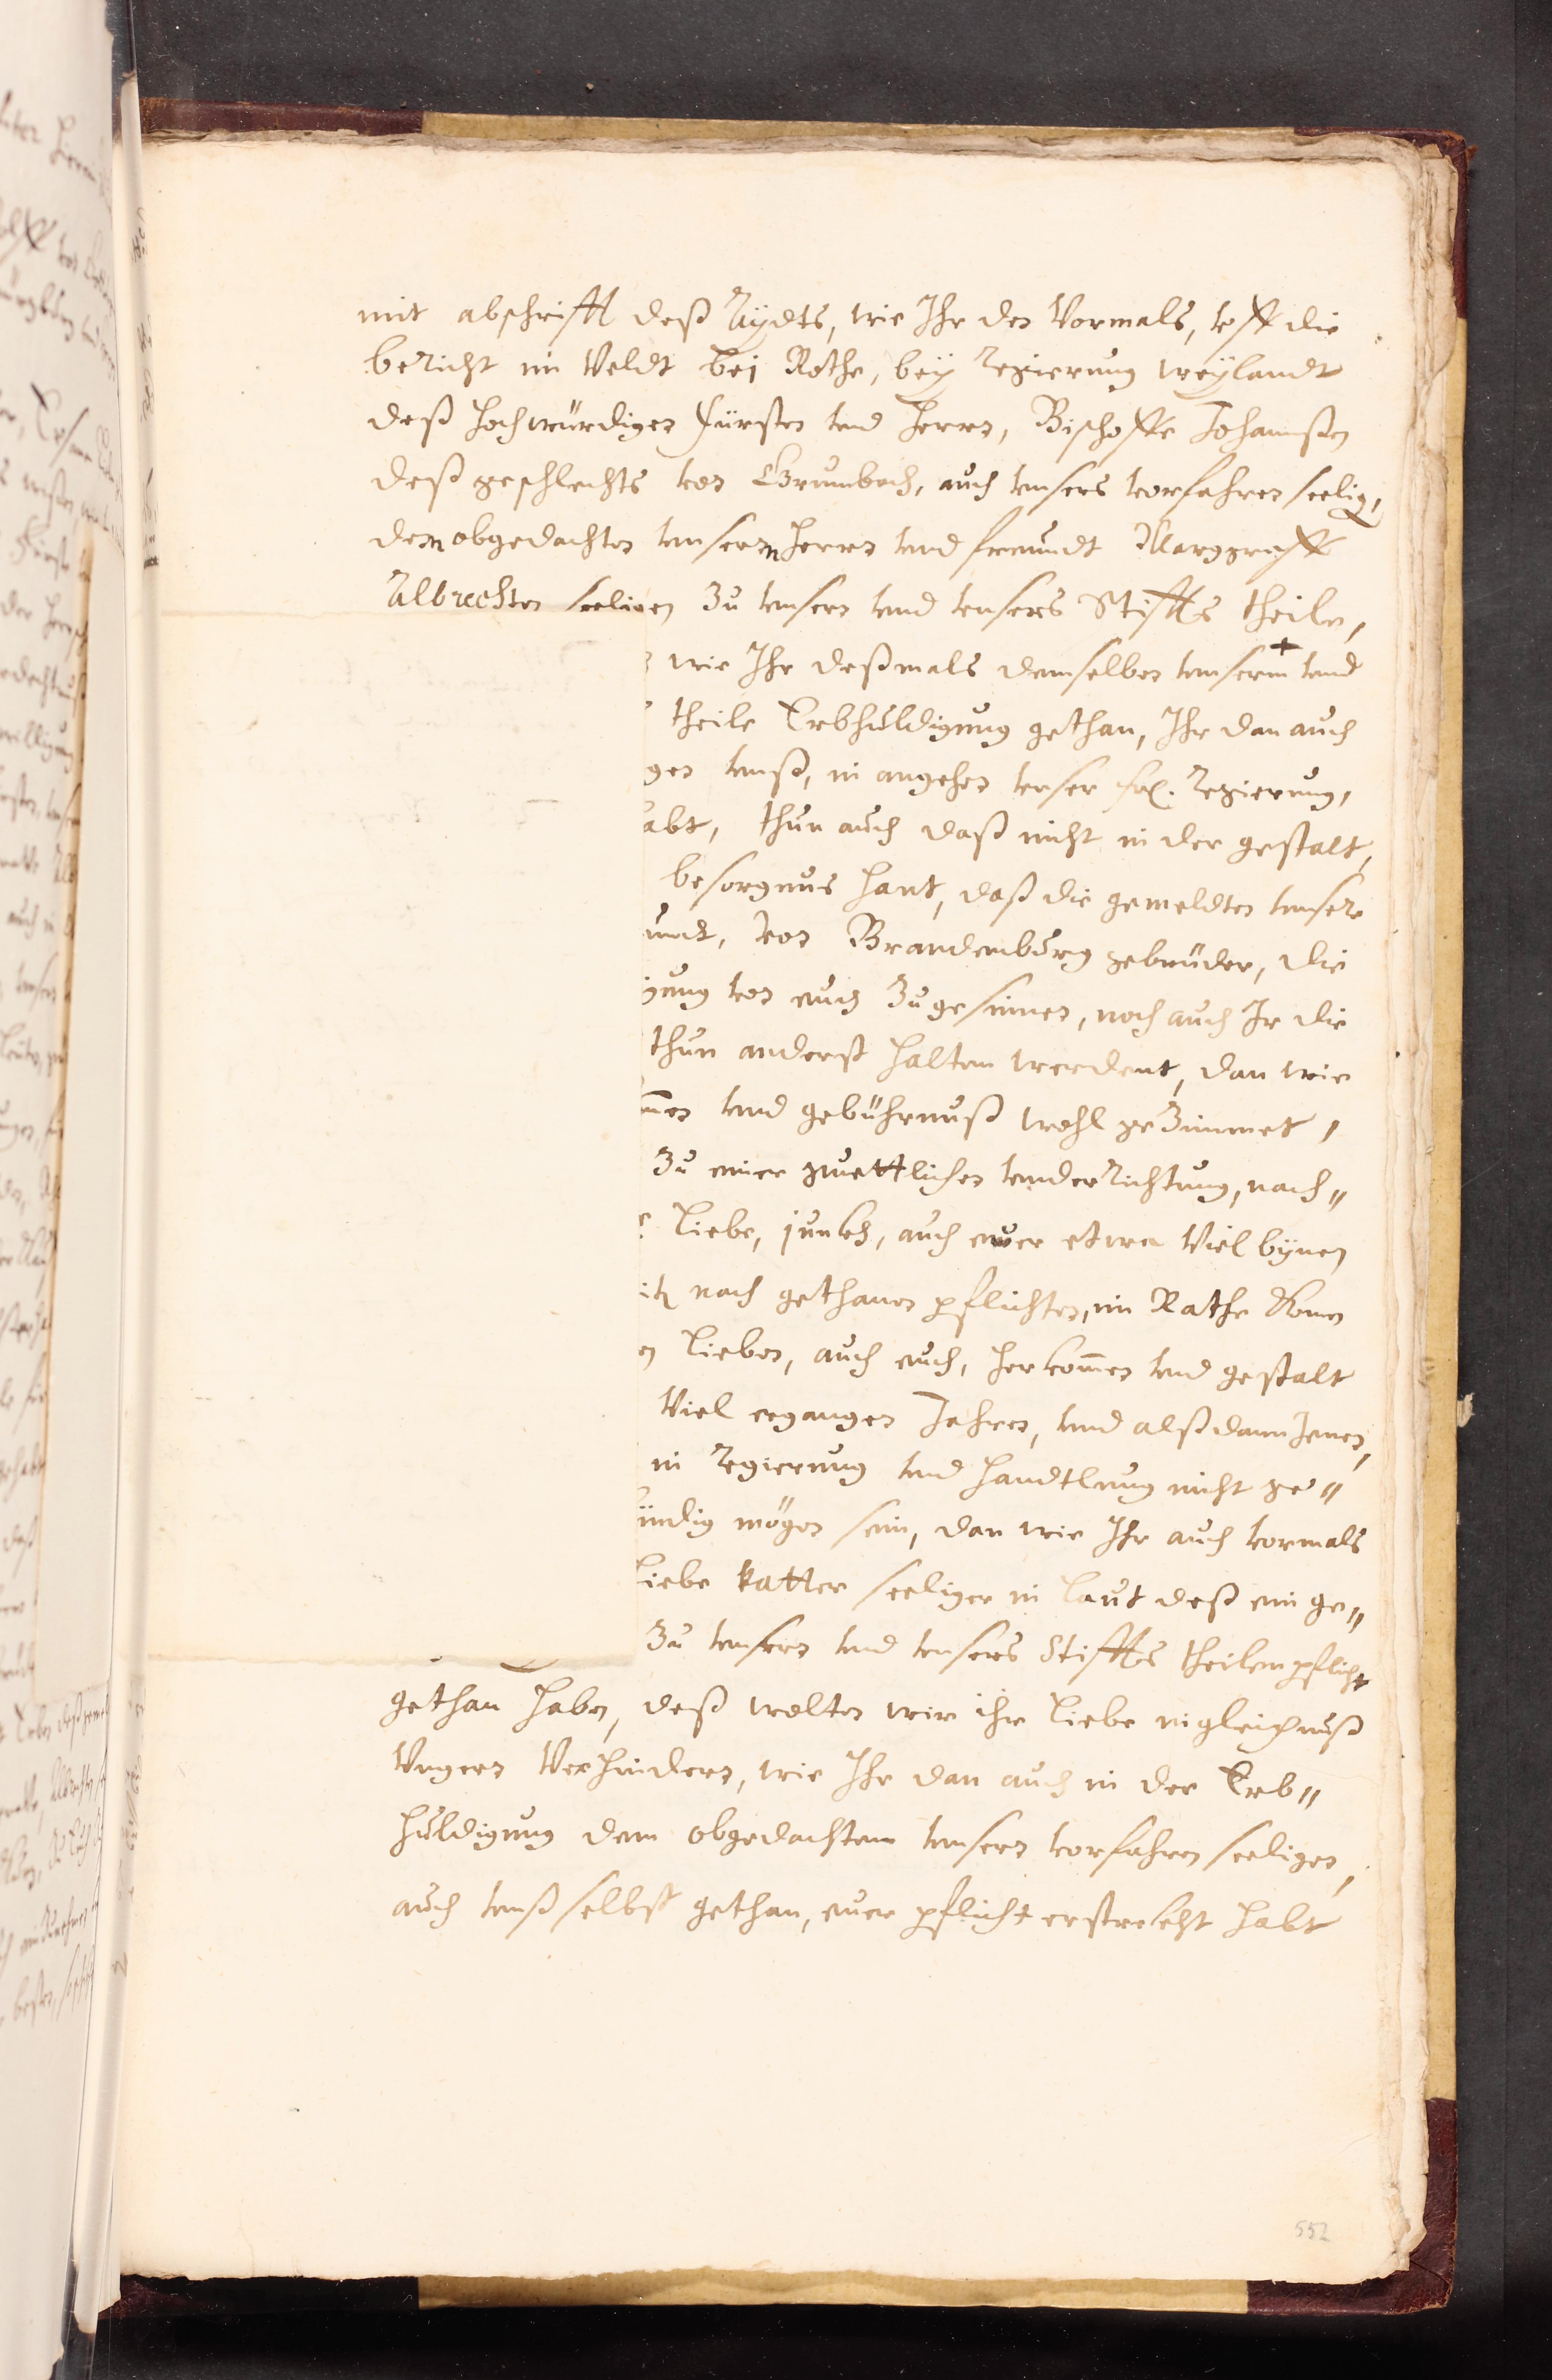 mit abschrifft deß Aÿdts, wie Ihr den Vormals, vff die
bericht im Veldt bei Rothe, beÿ Regierung weÿlandt
deß hochwürdigen fürsten vnd herrn, Bischoffe Johannßen
deß geschlechts von Grumbach, auch vnsers vorfahren seelig,
dem obgedachten vnserm herrn vnd freundt Marggraff
Albrechten seeligen zu vnsern vnd vnsers Stiffts theilen,
wie Ihr deßmals demselben vnserm vnd
theile Erbhuldigung gethan, Ihr dan auch
gen vnß, in angehen vnser Regierung,
abt, thun auch daß nicht in der gestalt,
besorgnus hant, daß die gemeldten vnsere
undt, von Brandenburg gebrüder, die
gung von euch zugesinnen, noch auch Ir die
thun anderst halten werdent, dan wie
men vnd gebührnuß wohl gezimmet,
zu einer guettlichen vnderrichtung, nach„
Liebe, junkh, auch ewer etwa Viel bÿnen
nach gethanen pflichten, im Rathe komen
n Lieben, auch euch, herkommen vnd gestalt
Viel ergangen Jahren, vnd alßdann Jenen,
in Regierung vnd handtlung nicht ge„
ündig mögen sein, dan wie Ihr auch vormals
Liebe vatter seeliger in laut deß einge„
zu vnsern vnd vnsers Stiffts theilen pflicht
gethan haben, deß wolten wir ihr Liebe ingleichnuß
Vngern Verhindern, wie Ihr dan auch in der Erb„
huldigung dem obgedachtem vnsern vorfahren seeligen,
auch vnß selbst gethan, euer pflicht erstrekht habt
552